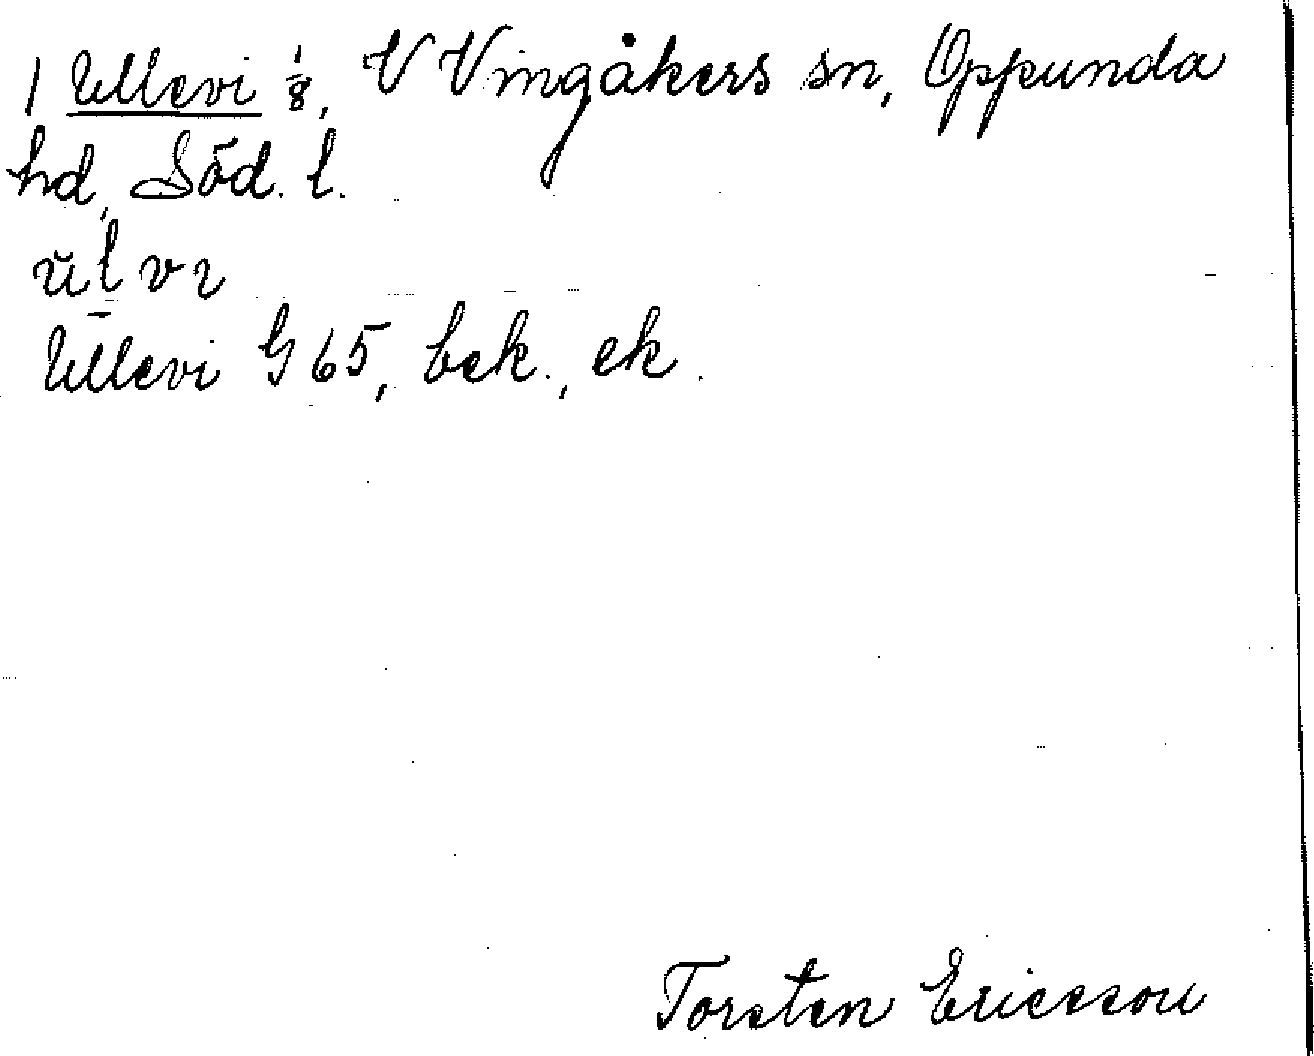 1 Ullevi 1/8, V Vingåkers sn, Oppunda
hd, Söd. l.
ŭl̠vı
Ullevi G 65, bek., ek.
Torsten Ericsson